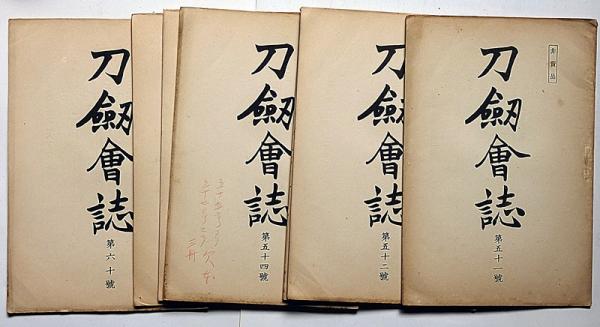 非賣品
刀劔會誌
第五十一號
刀劔會誌
第五十二號
刀劔會誌
第五十四號
刀劔會誌
第六十號